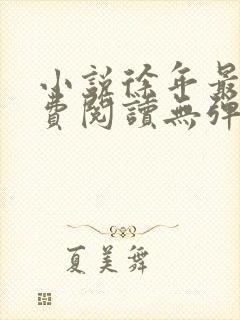 小說徐年最
費閱讀無彈
夏美舞